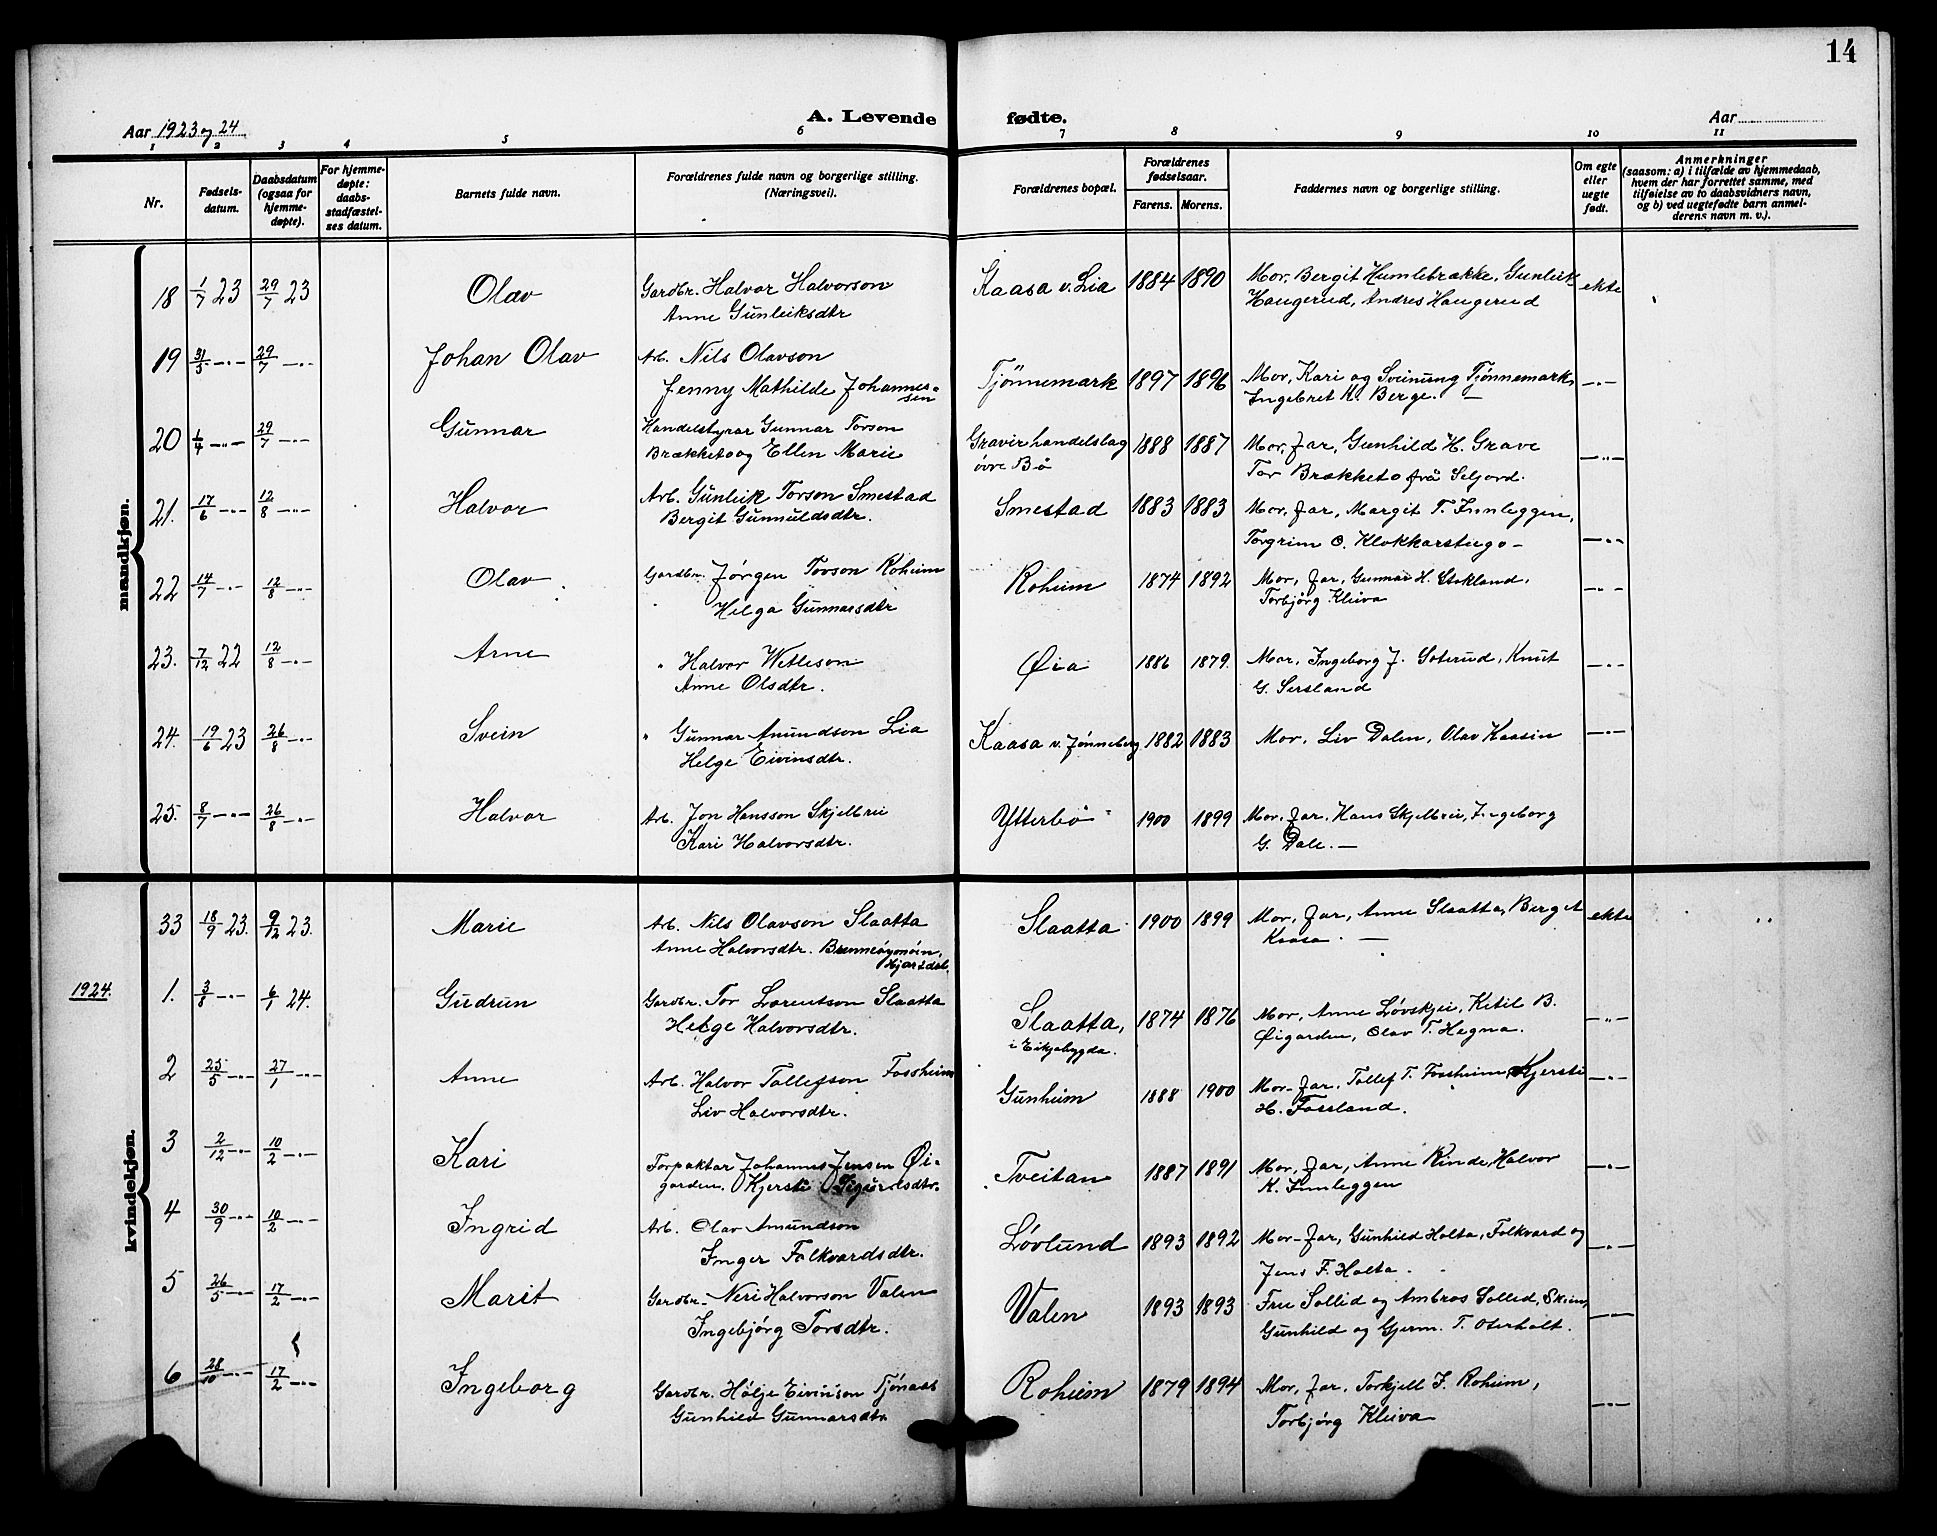 14
Aar 1923 og 24
A. Levende fødte.
Aar
1 2 3 4 5 6 7 8 9 10 11
Nr.
Fødsels-
datum.
Daabsdatum
(ogsaa for
hjemme-
døpte).
For hjemme-
døpte:
daabs-
stadfæstel-
ses datum.
Barnets fulde navn.
Forældrenes fulde navn og borgerlige stilling.
(Næringsvei).
Forældrenes bopæl.
Forældrenes
fødselsaar.
Farens. Morens.
Faddernes navn og borgerlige stilling.
Om egte
eller
uegte
født.
Anmerkninger
(saasom: a) i tilfælde av hjemmedaab,
hvem der har forrettet samme, med
tilføielse av to daabsvidners navn,
og b) ved uegtefødte barn anmel-
derens navn m. v.).
mandkjøn.
18 1/7 23 29/7 23 Olav Gardbr. Halvor Halvorson Kaasa v. Lia 1884 1890 Mor, Bergit Humlebrække, Gunleik ekte
Anne Gunleiksdtr Haugerud, Andres Haugerud
19 31/5 -"- 29/7 -"- Johan Olav Arb. Nils Olavson Tjönnemark 1897 1896 Mor, Kari og Sveinung Tjönnemark, -"-
Jenny Mathilde Johannes-
sen Ingebret K. Berge. -
20 1/4 -"- 29/7 -"- Gunnar Handelstyrar Gunnar Torson Gravir handelslag 1888 1887 Mor, Far, Gunhild H. Grave -"-
Brækketo og Ellen Marie övre Bö Tor Brækketo frå Seljord.
21. 17/6 -"- 12/8 -"- Halvor Arb. Gunleik Torson Smestad Smestad 1883 1883 Mor, Far, Margit T. Innleggen, -"-
Bergit Gunnuldsdtr. Torgrim O. Klokkarstugo -
22 14/7 -"- 12/8 -"- Olav Gardbr. Jørgen Torson Roheim Roheim 1874 1892 Mor, Far, Gunnar H. Stokland, -"-
Helga Gunnarsdtr Torbjörg Kleiva
23. 7/12 22 12/8 -"- Arne " Halvor Wetleson Øia 1886 1879. Mor, Ingeborg J. Soterud, Knut -"-
Anne Olsdtr. G. Sersland
24. 19/6 23 26/8 -"- Svein " Gunnar Amundson Lia Kaasa v. Jönneberg 1882 1883 Mor, Liv Dalen, Olav Kaasin -"-
Helge Eivinsdtr.
25. 8/7 -"- 26/8 -"- Halvor Arb. Jon Hansson Skjelbrei Ytterbö 1900 1899 Mor, Far, Hans Skjelbrei, Ingeborg -"-
Kari Halvorsdtr. G. Dale. -
kvindekjøn.
33 18/9 23. 9/12 23. Marie Arb. Nils Olavson Slaatta Slaatta 1900 1899 Mor, Far, Anne Slaatta, Berget ekte
Anne Halvorsdtr. Kaasa. -
Hjartdal.
1924.
1. 3/8 -"- 6/1 24. Gudrun Gardbr. Tor Lorentson Slaatta Slaatta, 1874 1876 Mor, Anne Lövskjei, Ketil B. -"-
Helge Halvorsdtr. i Eikjabygda. Øigarden, Olav T. Hegna.
2 25/5 -"- 27/1 -"- Anne Arb. Halvor Tollefson Fossheim Gunheim 1888 1900 Mor - Far, Tollef T. Fossheim, Kjersti -"-
Liv Halvorsdtr. H. Fossland.
3 2/12 -"- 10/2 -"- Kari Torpaktar Johannes Jensen Øi- Tveitan 1887 1891 Mor, Far, Anne Rinde, Halvor -"-
garden. Kjersti Sigurdsdtr. K. Innleggen
4 30/9 -"- 10/2 -"- Ingrid Arb. Olav Amundson Lövlund 1893 1892 Mor - Far, Gunhild Holta, Folkvard og -"-
Inger Folkvardsdtr. Jens F. Holta.
5 26/5 -"- 17/2 -"- Marit Gardbr. Neri Halvorson Valen Valen 1893 1893 Fru Sollid og Ambros Sollid, Skien, -"-
Ingebjörg Torsdtr. Gunhild og Gjerm. T. Oterholt.
6 28/10 -"- 17/2 -"- Ingeborg Gardbr. Hölje Eivinson Tjönaas Roheim 1879 1894 Mor, Far, Torkjell J. Roheim, -"-
Gunhild Gunnarsdtr Torbjörg Kleiva